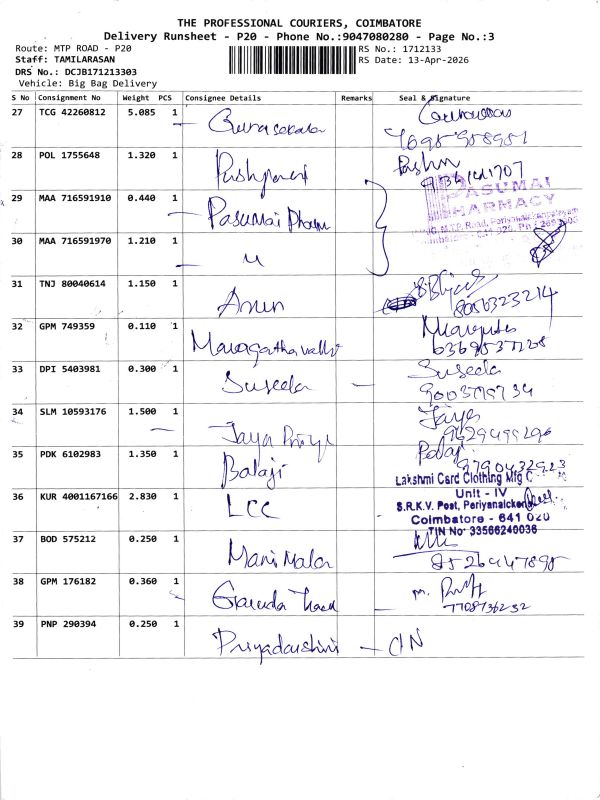 THE PROFESSIONAL COURIERS, COIMBATORE
Delivery Runsheet - P20 - Phone No.:9047080280 - Page No.:3
Route: MTP ROAD - P20
RS No.: 1712133
Staff: TAMILARASAN
RS Date: 13-Apr-2026
DRS No.: DCJB171213303
Vehicle: Big Bag Delivery
S No Consignment No Weight PCS Consignee Details Remarks Seal & Signature
27 TCG 42260812 5.085 1
28 POL 1755648 1.320 1
29 MAA 716591910 0.440 1 Pasumai Pharm
PASUMAI
PHARMACY
30 MAA 716591970 1.210 1 "
31 TNJ 80040614 1.150 1 Arun
8056323214
32 GPM 749359 0.110 1 Maragathavalli
33 DPI 5403981 0.300 1 Suseela Suseela
34 SLM 10593176 1.500 1 Jaya Priya Jaya
35 PDK 6102983 1.350 1 Balaji
9790432923
36 KUR 4001167166 2.830 1 LCC
Lakshmi Card Clothing Mfg C
Unit - IV
S.R.K.V. Post, Periyanaicken
Coimbatore - 641 020
TIN No 33566240036
37 BOD 575212 0.250 1 Manimala
8526947895
38 GPM 176182 0.360 1
7708736232
39 PNP 290394 0.250 1 Priyadarshini